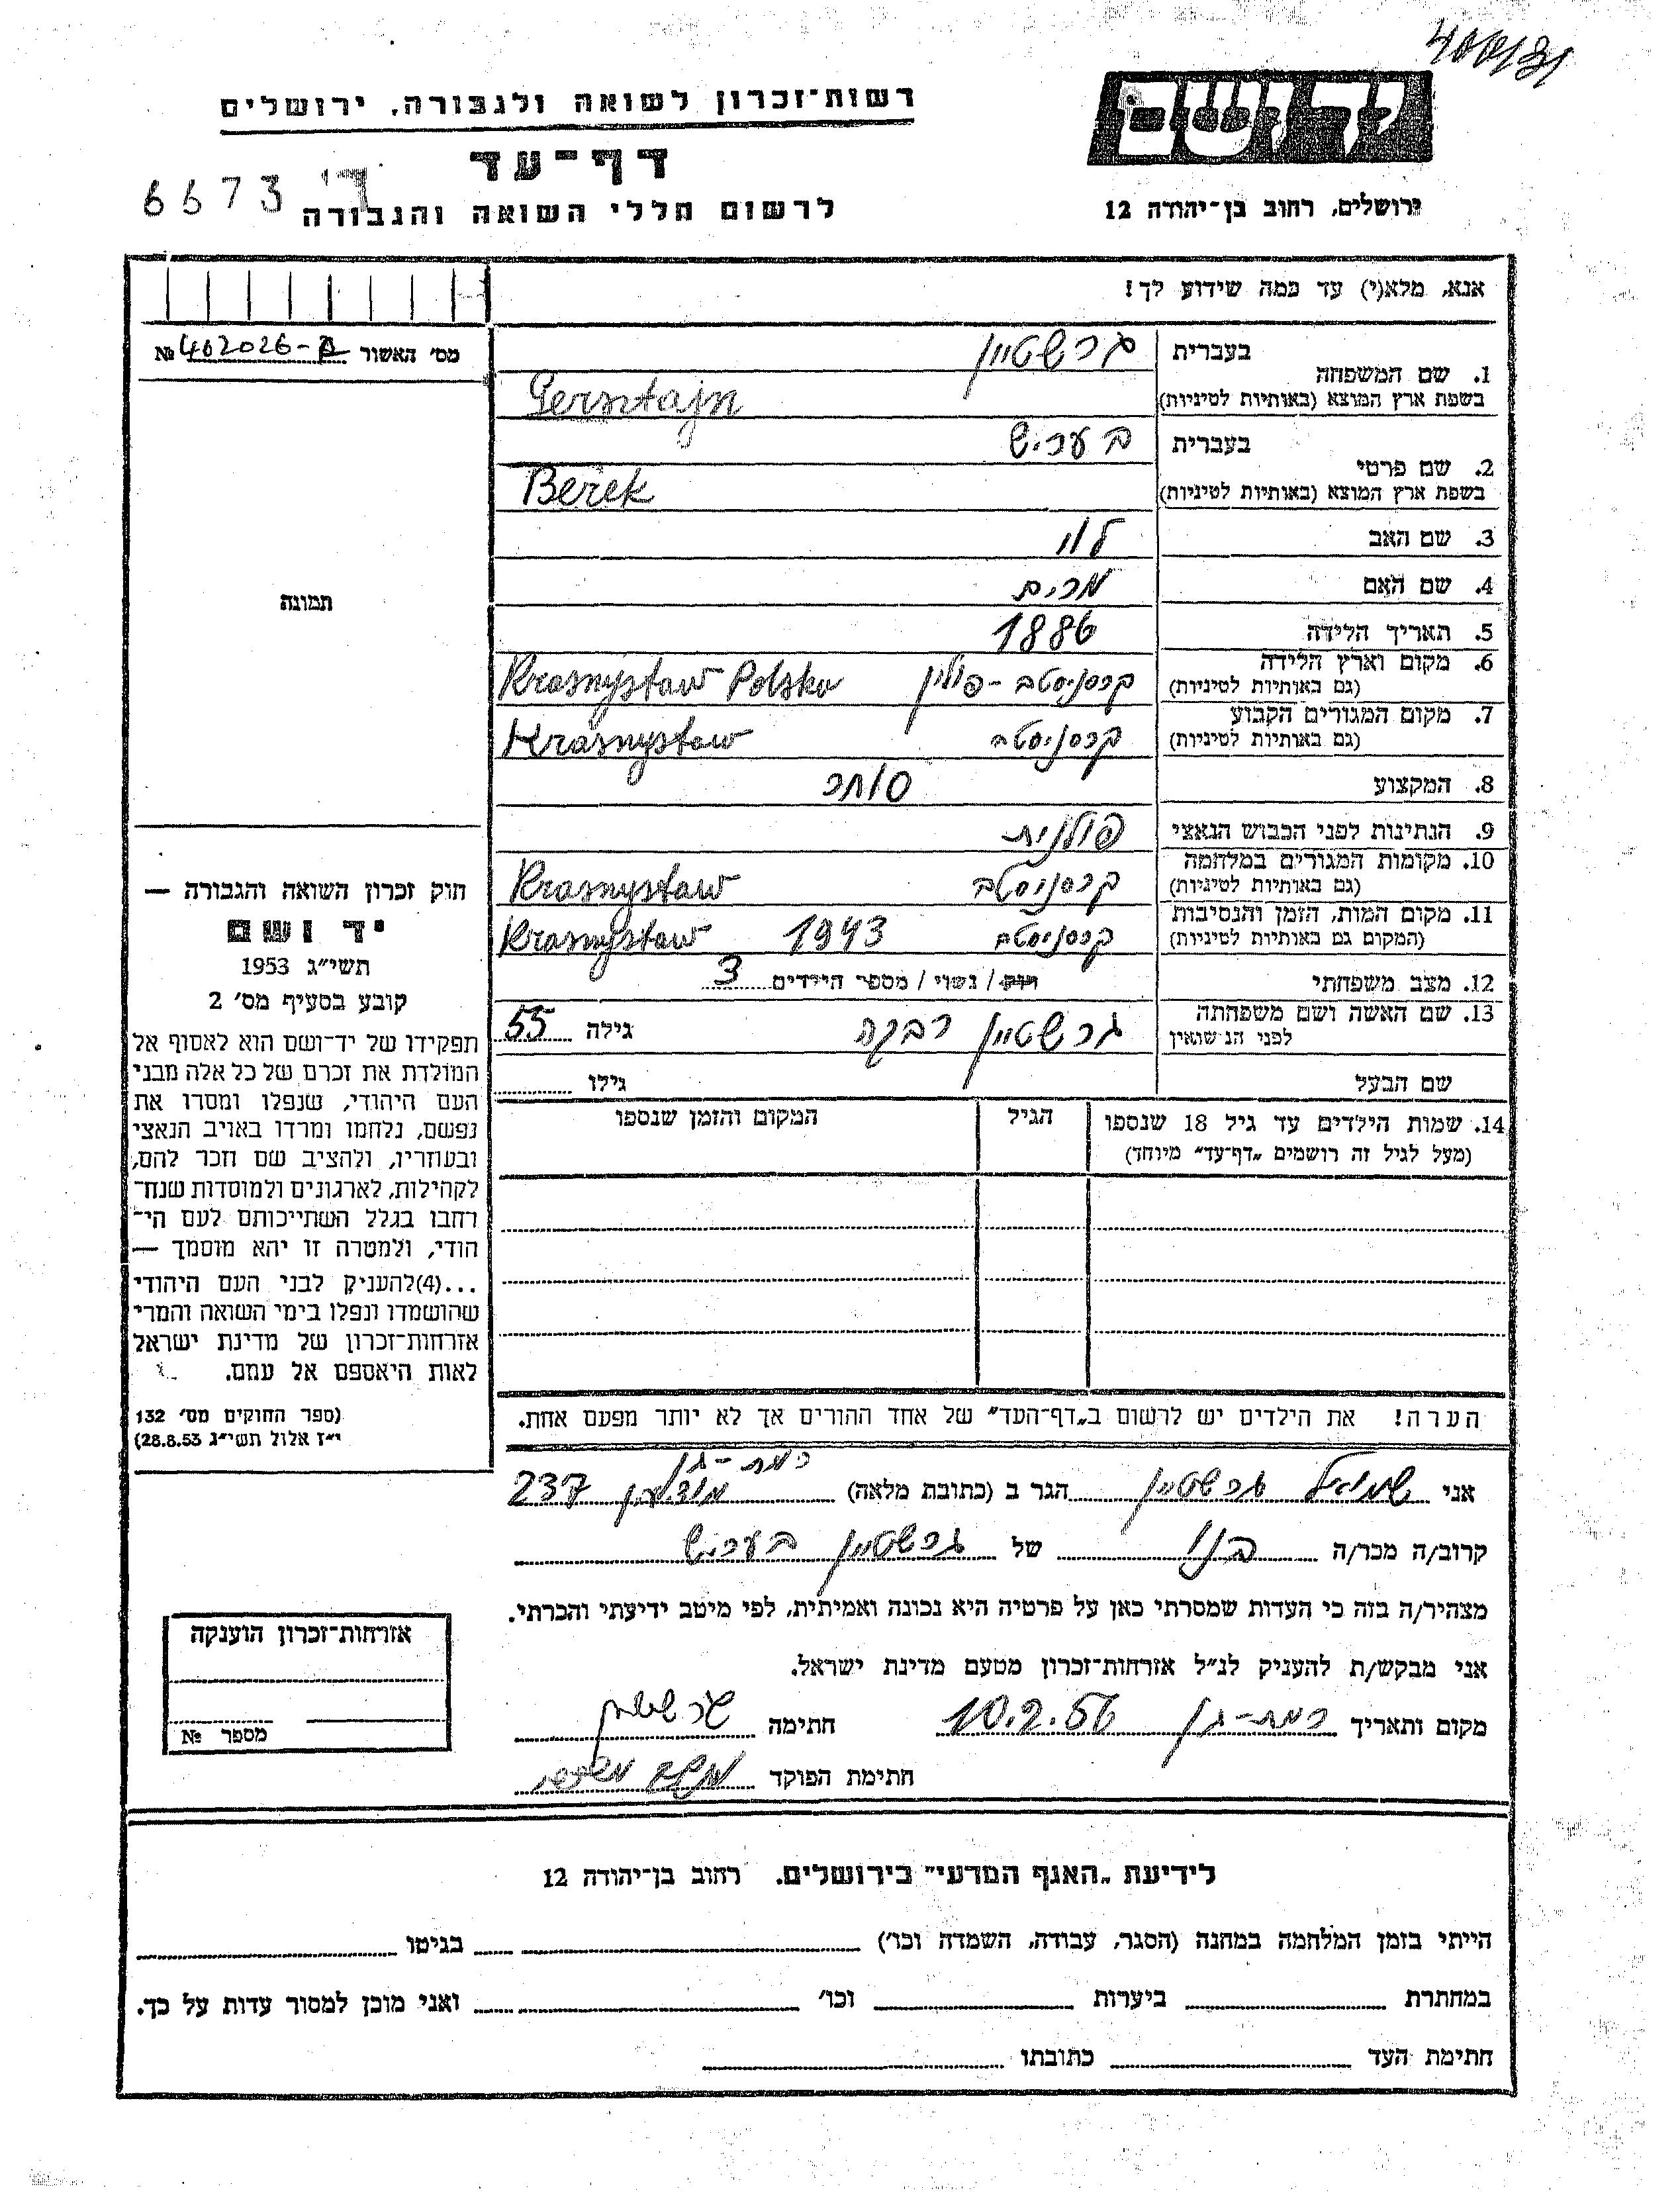 400/31
רשות־זכרון לשואה ולגבורה, ירושלים
יד ושם
דף־עד
6673
לרשום חללי השואה והגבורה
ירושלים, רחוב בן־יהודה 12
אנא, מלא(י) עד כמה שידוע לך!
מס' האשור 402026 №
בעברית גרשטיין
1. שם המשפחה
בשפת ארץ המוצא (באותיות לטיניות) Gersztajn
בעברית בעריש
2. שם פרטי
בשפת ארץ המוצא (באותיות לטיניות) Berek
3. שם האב לוי
4. שם האם מרים
תמונה
5. תאריך הלידה 1886
6. מקום וארץ הלידה
(גם באותיות לטיניות) קרסניסטב - פולין Krasnystaw Polska
7. מקום המגורים הקבוע
(גם באותיות לטיניות) קרסניסטב Krasnystaw
8. המקצוע סוחר
9. הנתינות לפני הכבוש הנאצי פולנית
10. מקומות המגורים במלחמה
(גם באותיות לטיניות) קרסניסטב Krasnystaw
11. מקום המות, הזמן והנסיבות
(המקום גם באותיות לטיניות) קרסניסטב 1943 Krasnystaw
12. מצב משפחתי רווק / נשוי / מספר הילדים 3
13. שם האשה ושם משפחתה
לפני הנישואין גרשטיין רבקה גילה 55
שם הבעל גילו
14. שמות הילדים עד גיל 18 שנספו הגיל המקום והזמן שנספו
(מעל לגיל זה רושמים „דף־עד" מיוחד)
חוק זכרון השואה והגבורה —
יד ושם
תשי"ג 1953
קובע בסעיף מס' 2
תפקידו של יד־ושם הוא לאסוף אל
המולדת את זכרם של כל אלה מבני
העם היהודי, שנפלו ומסרו את
נפשם, נלחמו ומרדו באויב הנאצי
ובעוזריו, ולהציב שם וזכר להם,
לקהילות, לארגונים ולמוסדות שנח־
רחבו בגלל השתייכותם לעם הי־
הודי, ולמטרה זו יהא מוסמך —
...(4)להעניק לבני העם היהודי
שהושמדו ונפלו בימי השואה והמרי
אזרחות־זכרון של מדינת ישראל
לאות היאספם אל עמם.
(ספר החוקים מס' 132
י"ז אלול תשי"ג 28.8.53)
הערה! את הילדים יש לרשום ב„דף־העד" של אחד ההורים אך לא יותר מפעם אחת.
רמת-גן
אני שמואל גרשטיין הגר ב (כתובת מלאה) מודיעין 237
קרוב/ה מכר/ה בנו של גרשטיין בעריש
מצהיר/ה בזה כי העדות שמסרתי כאן על פרטיה היא נכונה ואמיתית, לפי מיטב ידיעתי והכרתי.
אני מבקש/ת להעניק לנ"ל אזרחות־זכרון מטעם מדינת ישראל.
מקום ותאריך רמת-גן 10.2.56 חתימה גרשטיין
חתימת הפוקד
אזרחות־זכרון הוענקה
מספר №
לידיעת „האגף המדעי" בירושלים. רחוב בן־יהודה 12
הייתי בזמן המלחמה במחנה (הסגר, עבודה, השמדה וכו') בגיטו
במחתרת ביערות וכו' ואני מוכן למסור עדות על כך.
חתימת העד כתובתו